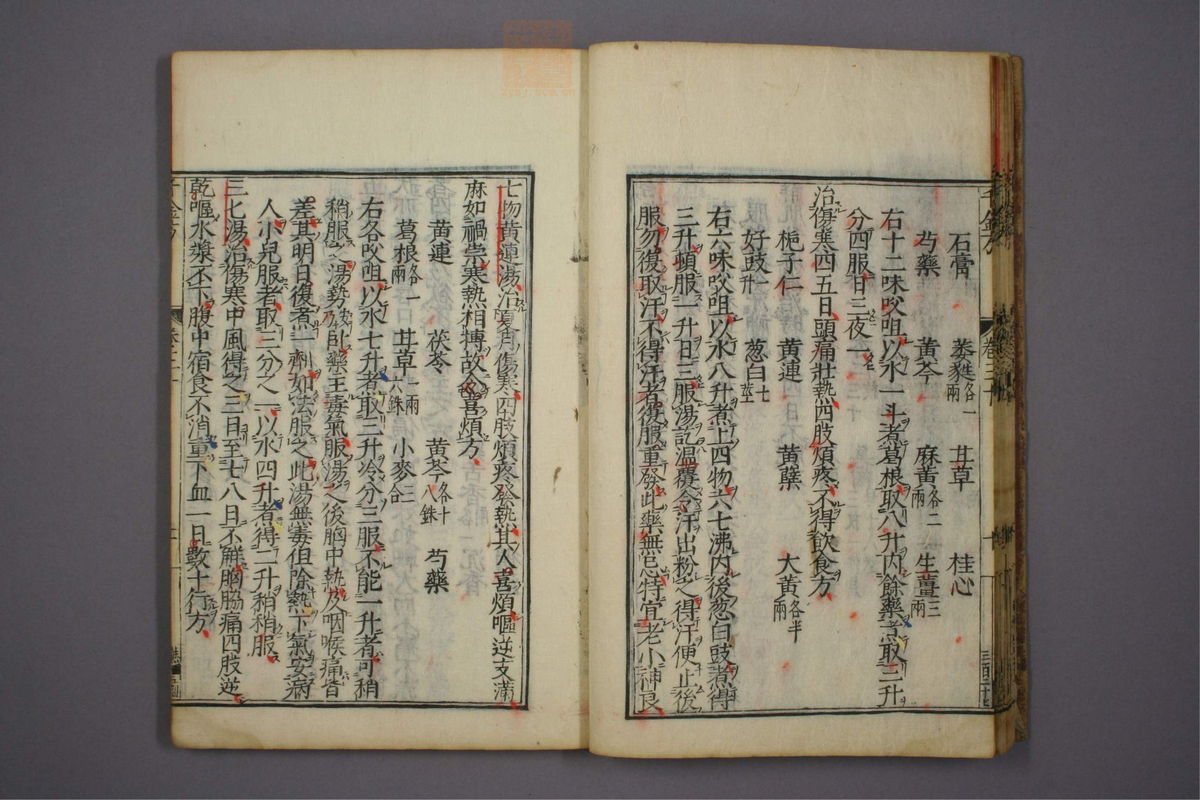 石膏 葳蕤各一兩 甘草 桂心
芍藥 黃芩 麻黃各二兩 生薑三兩
右十二味㕮咀以水一斗煮葛根取八升內餘藥煮取三升
分四服日三夜一
治傷寒四五日頭痛壯熱四肢煩疼不得飲食方
梔子仁 黃連 黃蘗 大黃各半兩
好豉一升 葱白七莖
右六味㕮咀以水八升煮上四物六七沸內後葱白豉煮得
三升頓服一升日三服湯訖溫覆令汗出粉之得汗便止後
服勿復取汗不得汗者復服重發此藥無忌特宜老小神良
七物黃連湯治夏月傷寒四肢煩疼發熱其人喜煩嘔逆支滿
麻如禍祟寒熱相搏故令喜煩方
黃連 茯苓 黃芩各十八銖 芍藥
葛根各一兩 甘草一兩六銖 小麥三合
右各㕮咀以水七升煮取三升冷分三服不能一升者可稍
稍服之湯勢乃臥藥主毒氣服湯之後胸中熱及咽喉痛皆
差其明日復煮一劑如法服之此湯無毒但除熱下氣安病
人小兒服者取三分之一以水四升煮得二升稍稍服
三七湯治傷寒中風得之三日至七八日不解胸脇痛四肢逆
乾嘔水漿不下腹中宿食不消重下血一日數十行方